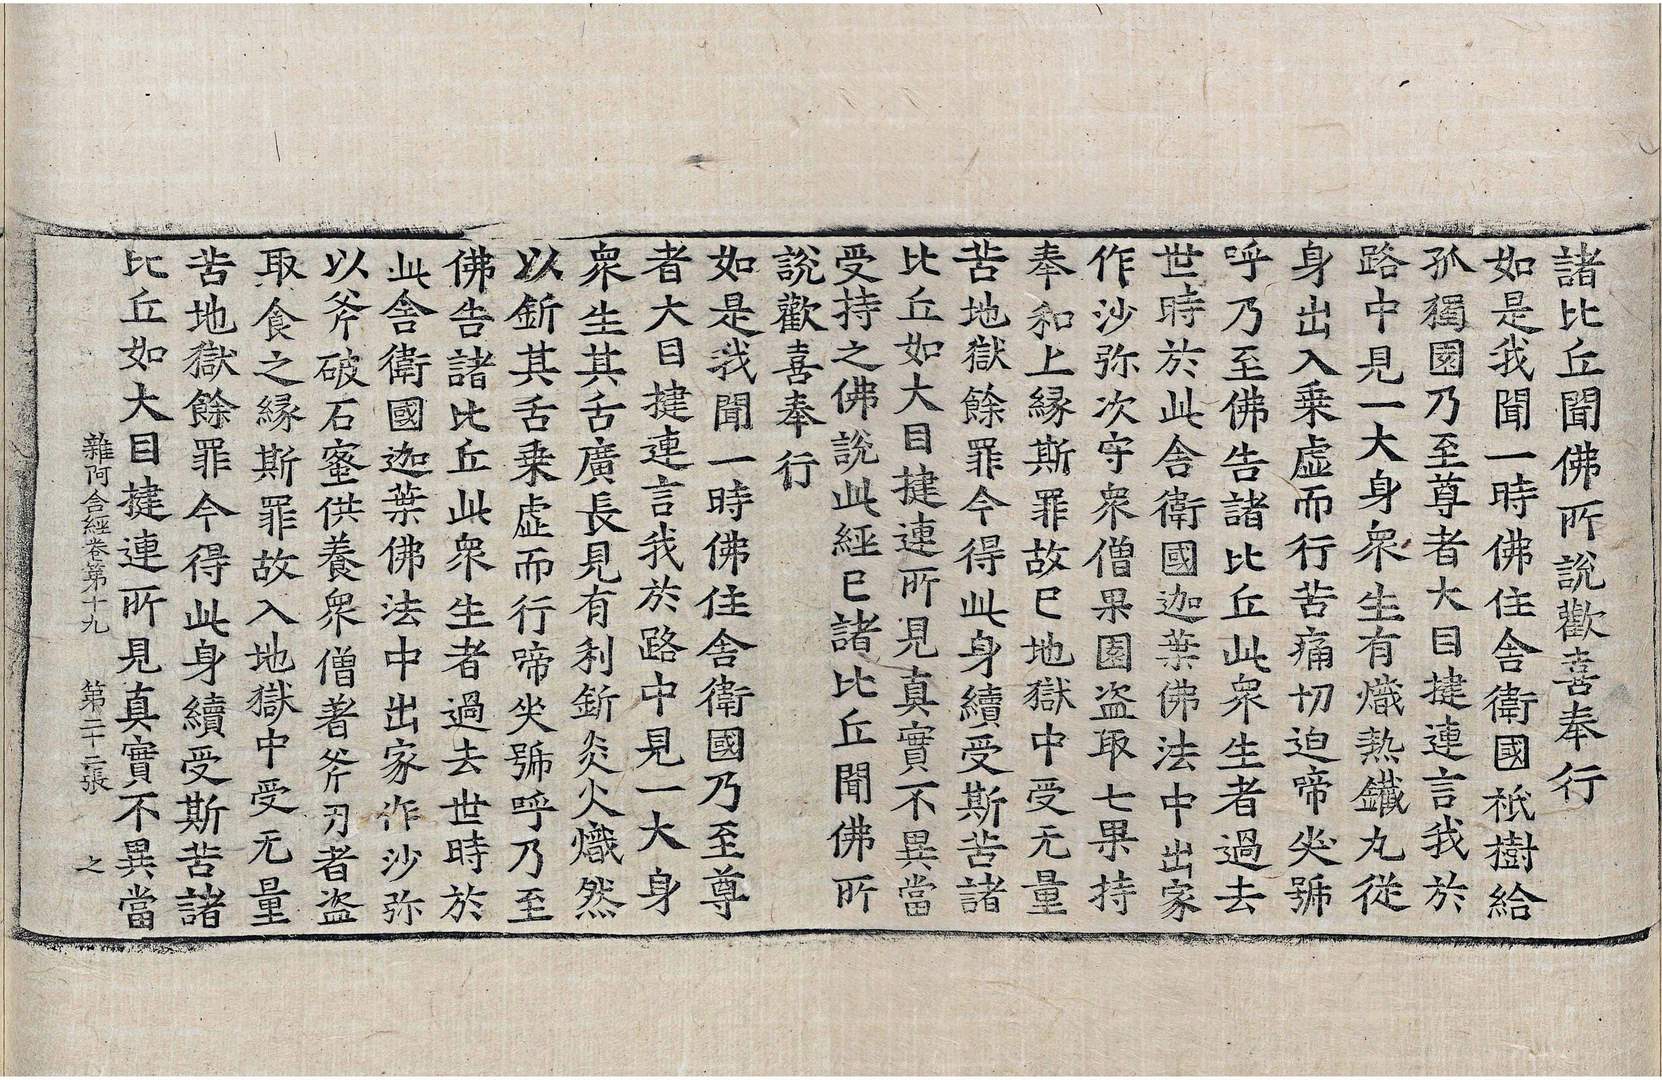 諸比丘聞佛所說歡喜奉行
如是我聞一時佛住舍衛國祇樹給
孤獨園乃至尊者大目揵連言我於
路中見一大身衆生有熾熱鐵丸從
身出入乗虛而行苦痛切迫啼哭號
呼乃至佛告諸比丘此衆生者過去
世時於此舍衛國迦葉佛法中出家
作沙弥次守衆僧果園盗取七果持
奉和上縁斯罪故巳地獄中受无量
苦地獄餘罪今得此身續受斯苦諸
比丘如大目揵連所見真實不異當
受持之佛說此經巳諸比丘聞佛所
說歡喜奉行
如是我聞一時佛住舍衛國乃至尊
者大目揵連言我於路中見一大身
衆生其舌廣長見有利釿炎火熾然
以釿其舌乗虛而行啼哭號呼乃至
佛告諸比丘此衆生者過去世時於
此舍衛國迦葉佛法中出家作沙弥
以斧破石蜜供養衆僧著斧刃者盗
取食之縁斯罪故入地獄中受无量
苦地獄餘罪今得此身續受斯苦諸
比丘如大目揵連所見真實不異當
雜阿含經卷第十九 第二十二張 之